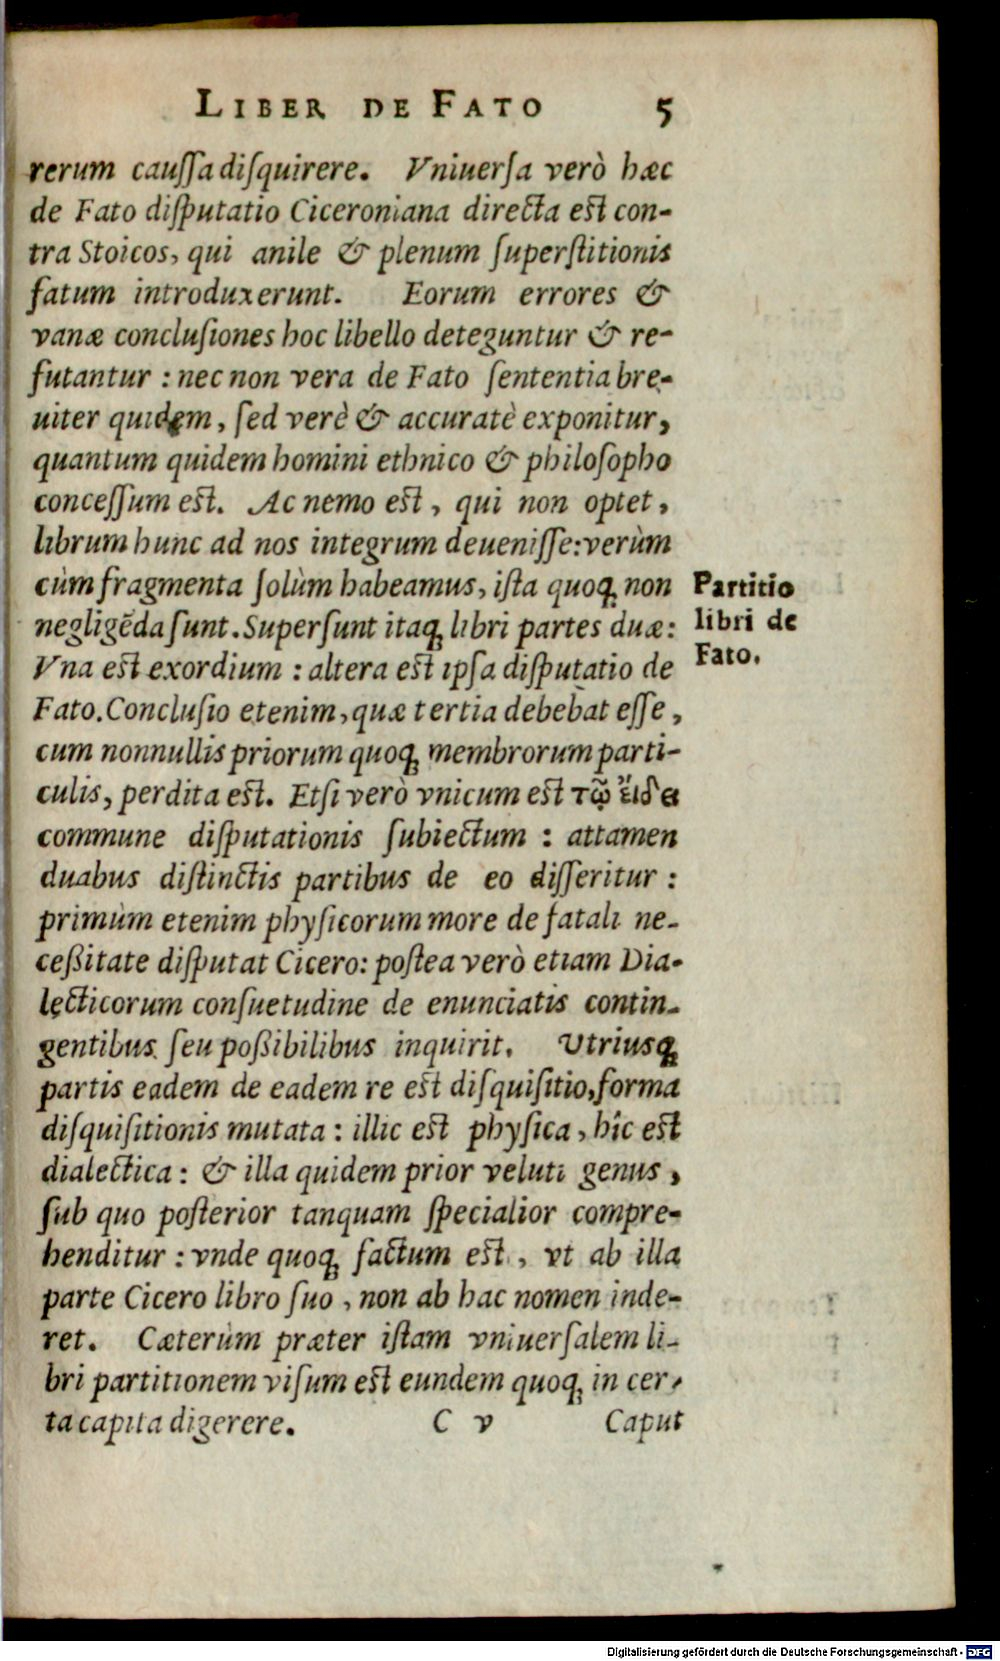 LIBER DE FATO 5
rerum cauſſa diſquirere. Vniuerſa verò hæc
de Fato diſputatio Ciceroniana directa est con-
tra Stoicos, qui anile & plenum ſuperſtitionis
fatum introduxerunt. Eorum errores &
vanæ concluſiones hoc libello deteguntur & re-
futantur : nec non vera de Fato ſententia bre-
uiter quidem, ſed verè & accuratè exponitur,
quantum quidem homini ethnico & philoſopho
conceſſum est. Ac nemo est, qui non optet,
librum hunc ad nos integrum deueniſſe: verùm
cùm fragmenta ſolùm habeamus, iſta quoq; non
negligēda ſunt. Superſunt itaq; libri partes duæ:
Vna est exordium : altera est ipſa diſputatio de
Fato. Concluſio etenim, quæ tertia debebat eſſe,
cum nonnullis priorum quoq; membrorum parti-
culis, perdita est. Etſi verò vnicum est τῷ εἴδει
commune diſputationis ſubiectum : attamen
duabus diſtinctis partibus de eo diſſeritur :
primùm etenim phyſicorum more de fatali ne-
ceßitate diſputat Cicero: poſtea verò etiam Dia-
lecticorum conſuetudine de enunciatis contin-
gentibus ſeu poßibilibus inquirit. Vtriusq;
partis eadem de eadem re est diſquiſitio, forma
diſquiſitionis mutata : illic est phyſica, hîc est
dialectica : & illa quidem prior veluti genus,
ſub quo poſterior tanquam ſpecialior compre-
henditur : vnde quoq; factum est, vt ab illa
parte Cicero libro ſuo, non ab hac nomen inde-
ret. Cæterùm præter iſtam vniuerſalem li-
bri partitionem viſum est eundem quoq; in cer-
ta capita digerere. C v Caput
Partitio
libri de
Fato.
Digitalisierung gefördert durch die Deutsche Forschungsgemeinschaft - DFG